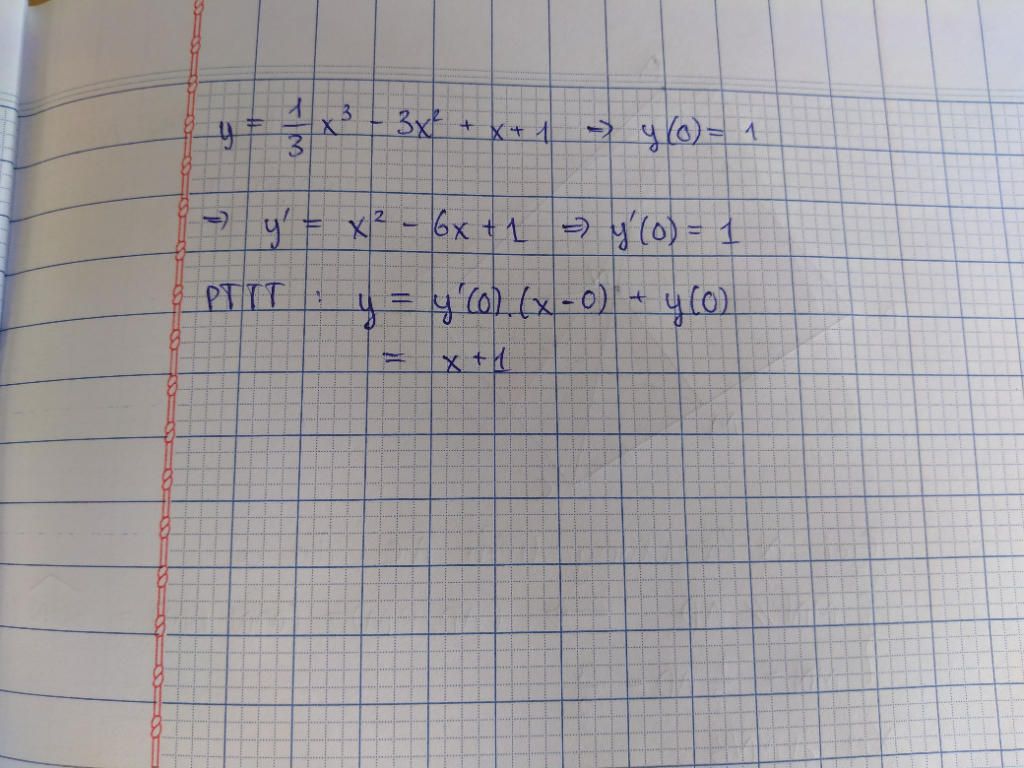 y = 1/3 x³ - 3x² + x + 1 → y(0) = 1
⇒ y' = x² - 6x + 1 ⇒ y'(0) = 1
PTTT : y = y'(0).(x - 0) + y(0)
= x + 1